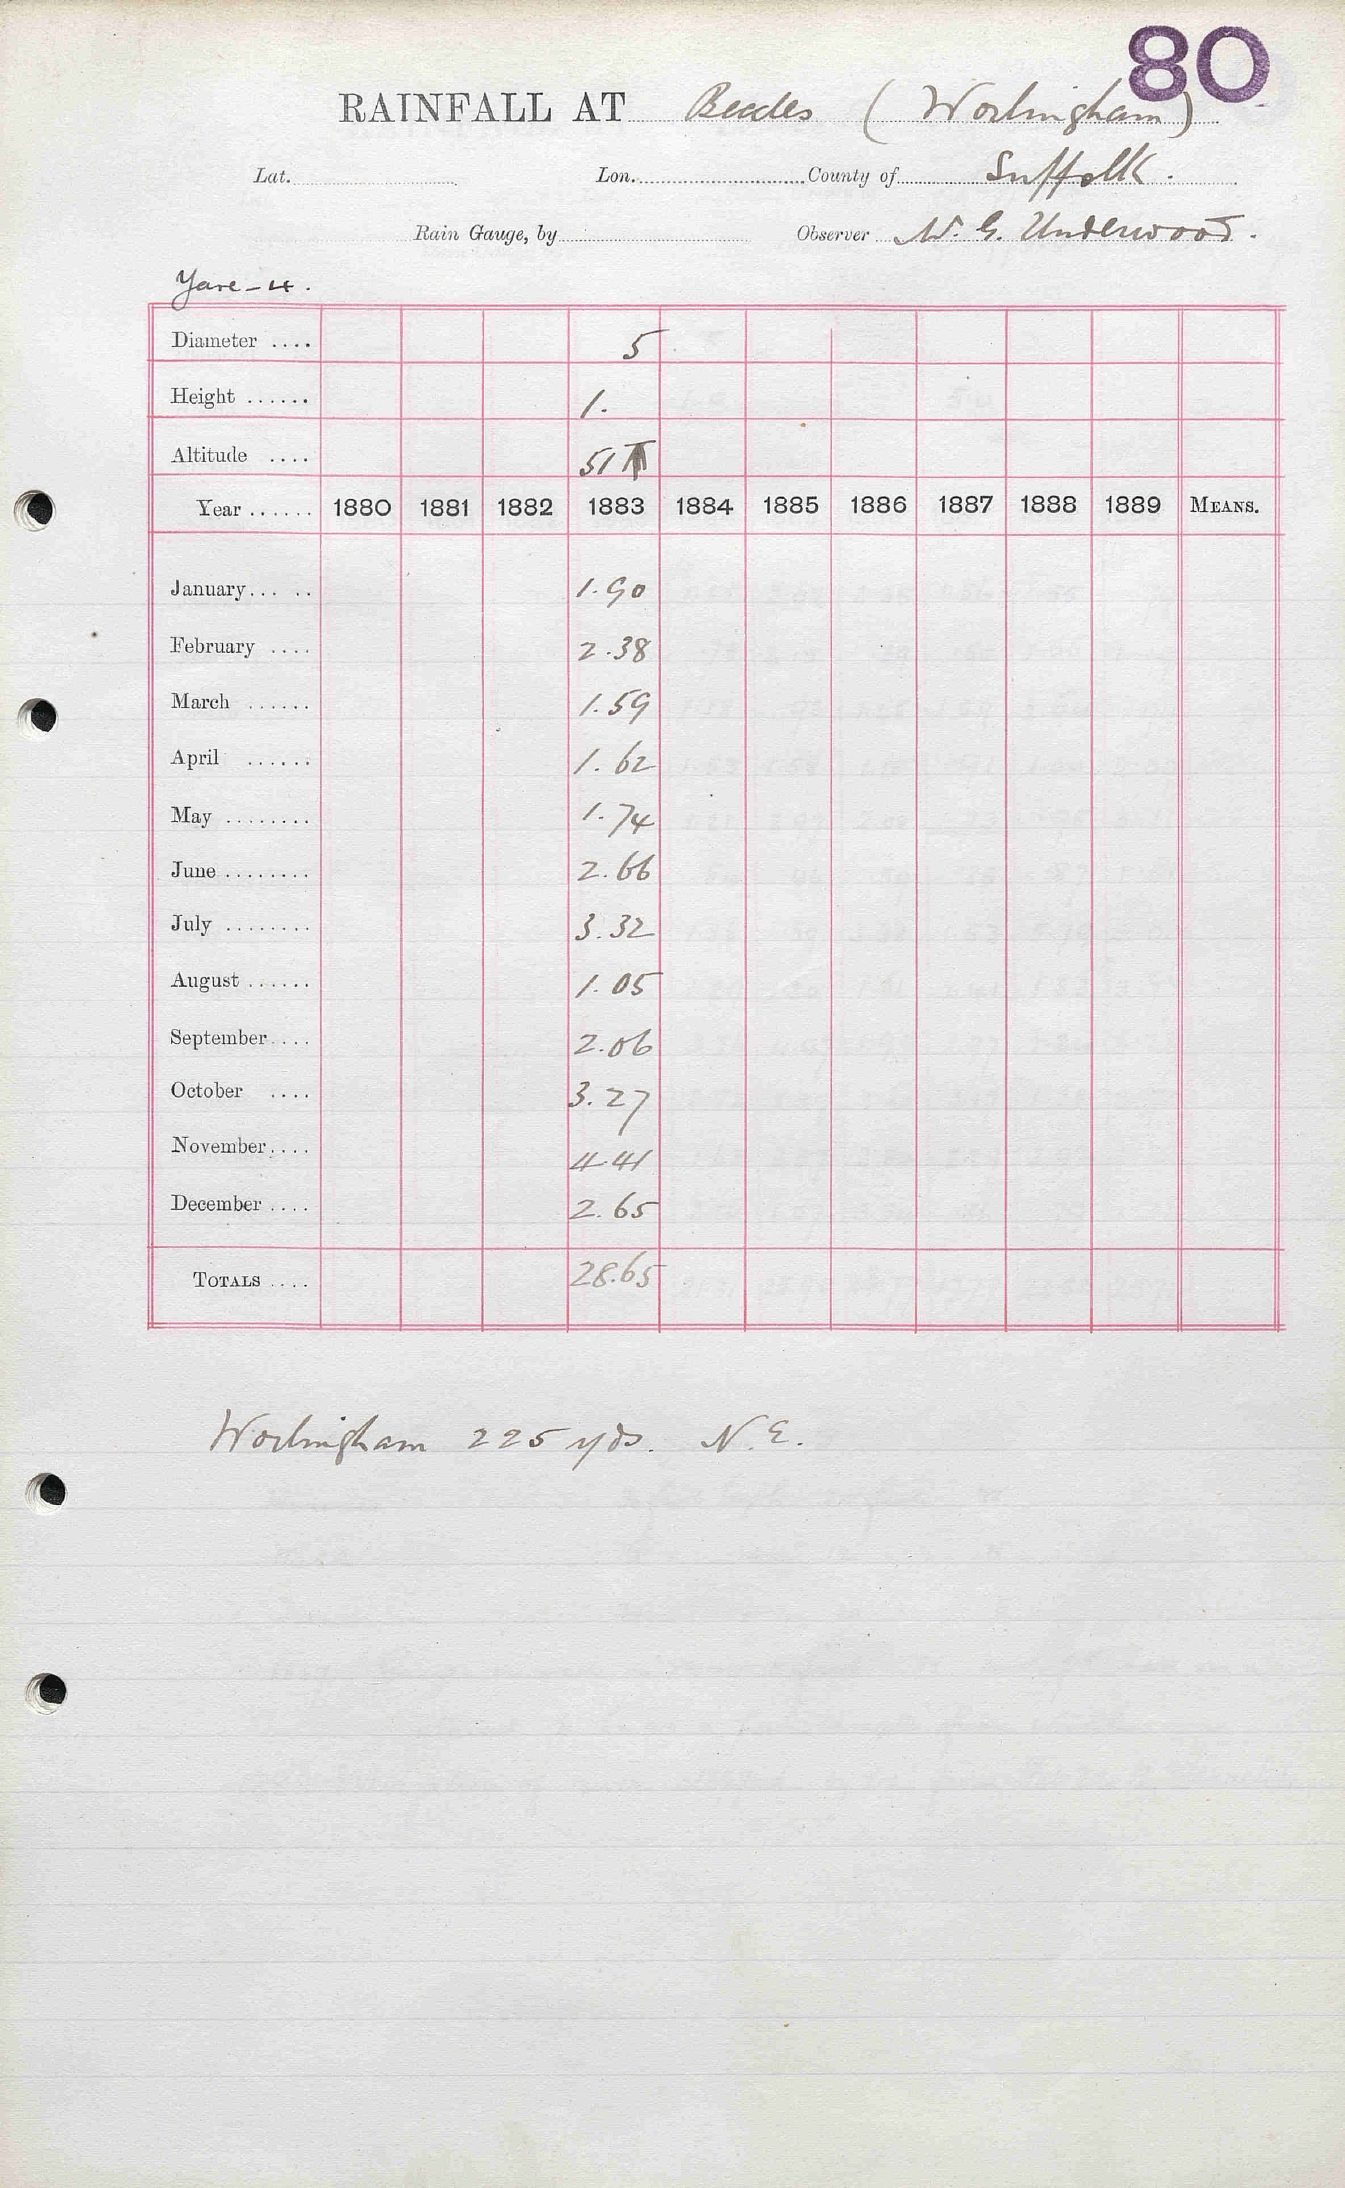 80
RAINFALL AT Beccles (Worlingham)
Lat. Lon. County of Suffolk.
Rain Gauge, by Observer W. G. Underwood.
Yare-4.
Diameter .... 5
Height ...... 1.
Altitude .... 51
Year ...... 1880 1881 1882 1883 1884 1885 1886 1887 1888 1889 MEANS.
January... .. 1.90
February .... 2.38
March ...... 1.59
April ...... 1.62
May ........ 1.74
June ........ 2.66
July ........ 3.32
August ...... 1.05
September.... 2.06
October .... 3.27
November.... 4 41
December .... 2.65
TOTALS .... 28.65
Worlingham 225 yds. N.E.